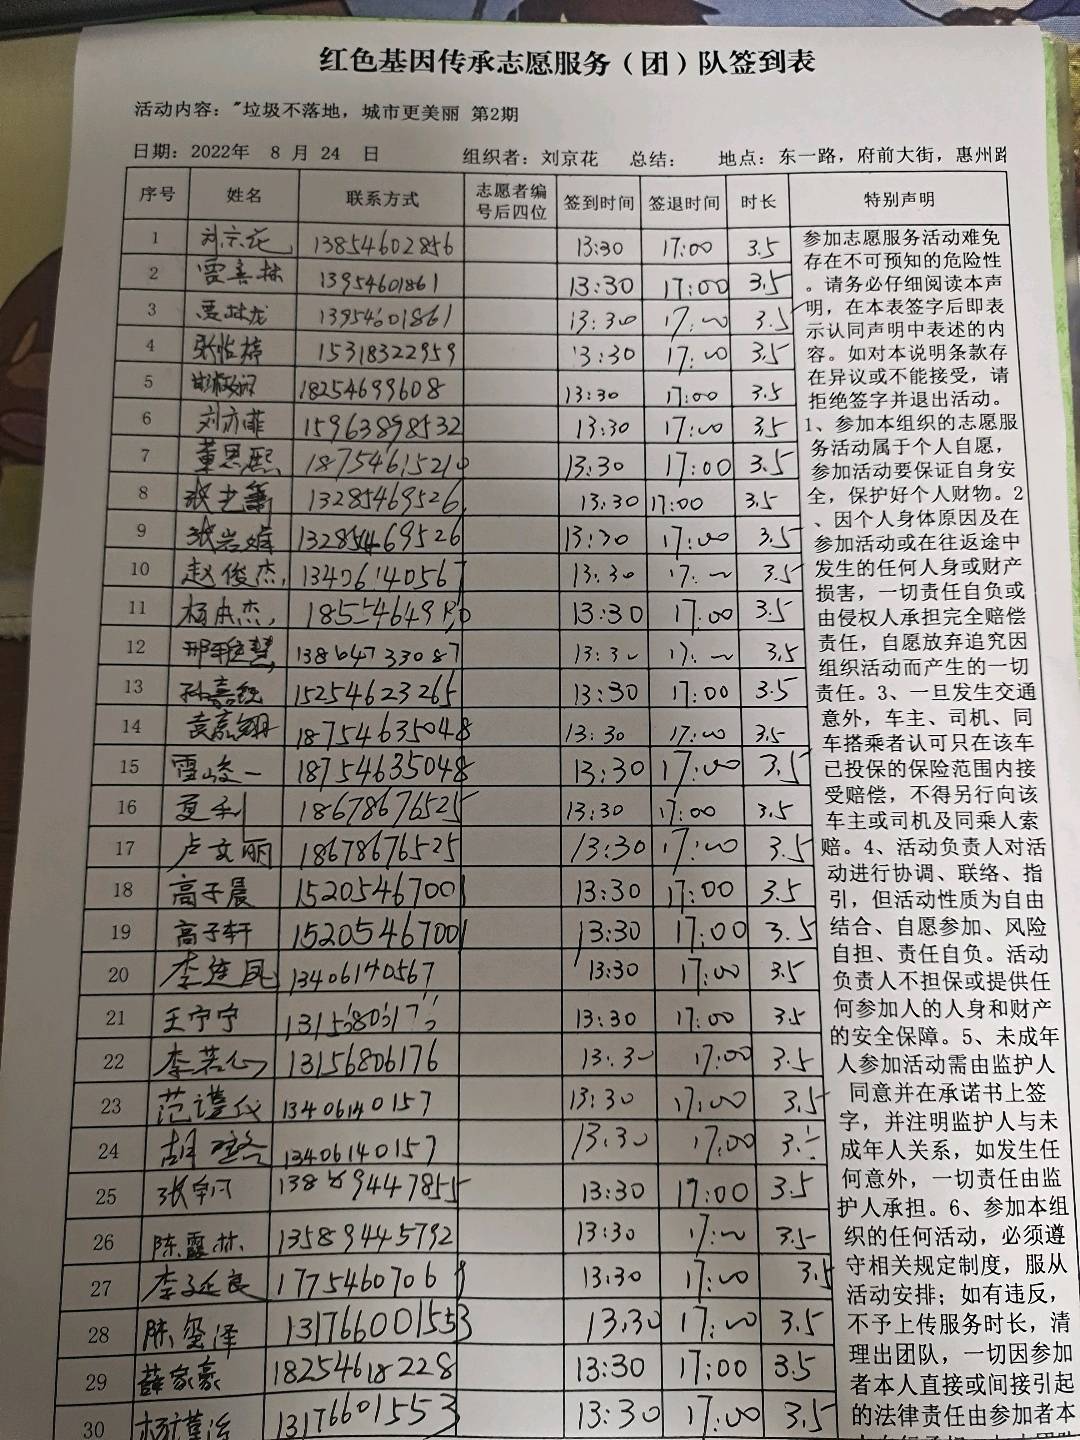 红色基因传承志愿服务（团）队签到表
活动内容："垃圾不落地，城市更美丽 第2期
日期：2022年 8 月 24 日 组织者：刘京花 总结： 地点：东一路，府前大街，惠州路
序号 姓名 联系方式 志愿者编号后四位 签到时间 签退时间 时长 特别声明
1 刘京花 13854602856 13:30 17:00 3.5
2 13954601861 13:30 17:00 3.5
3 13954601861 13:30 17:00 3.5
4 15318322959 13:30 17:00 3.5
5 18254699608 13:30 17:00 3.5
6 刘亦菲 15963898532 13:30 17:00 3.5
7 董思熙 18754615210 13:30 17:00 3.5
8 13285469526 13:30 17:00 3.5
9 13285469526 13:30 17:00 3.5
10 赵俊杰 13406140567 13:30 17:00 3.5
11 13:30 17:00 3.5
12 13864733087 13:30 17:00 3.5
13 15254623265 13:30 17:00 3.5
14 18754635048 13:30 17:00 3.5
15 18754635048 13:30 17:00 3.5
16 夏利 18678676525 13:30 17:00 3.5
17 卢文丽 18678676525 13:30 17:00 3.5
18 高子晨 15205467001 13:30 17:00 3.5
19 高子轩 15205467001 13:30 17:00 3.5
20 13406140567 13:30 17:00 3.5
21 王宁宁 13:30 17:00 3.5
22 李若心 13156806176 13:30 17:00 3.5
23 范谨仪 13406140157 13:30 17:00 3.5
24 13406140157 13:30 17:00 3.5
25 13:30 17:00 3.5
26 陈霞林 13589445792 13:30 17:00 3.5
27 李延良 13:30 17:00 3.5
28 陈玺泽 13:30 17:00 3.5
29 薛家豪 18254618228 13:30 17:00 3.5
30 13176601553 13:30 17:00 3.5
参加志愿服务活动难免
存在不可预知的危险性
。请务必仔细阅读本声
明，在本表签字后即表
示认同声明中表述的内
容。如对本说明条款存
在异议或不能接受，请
拒绝签字并退出活动。
1、参加本组织的志愿服
务活动属于个人自愿，
参加活动要保证自身安
全，保护好个人财物。2
、因个人身体原因及在
参加活动或在往返途中
发生的任何人身或财产
损害，一切责任自负或
由侵权人承担完全赔偿
责任，自愿放弃追究因
组织活动而产生的一切
责任。3、一旦发生交通
意外，车主、司机、同
车搭乘者认可只在该车
已投保的保险范围内接
受赔偿，不得另行向该
车主或司机及同乘人索
赔。4、活动负责人对活
动进行协调、联络、指
引，但活动性质为自由
结合、自愿参加、风险
自担、责任自负。活动
负责人不担保或提供任
何参加人的人身和财产
的安全保障。5、未成年
人参加活动需由监护人
同意并在承诺书上签
字，并注明监护人与未
成年人关系，如发生任
何意外，一切责任由监
护人承担。6、参加本组
织的任何活动，必须遵
守相关规定制度，服从
活动安排；如有违反，
不予上传服务时长，清
理出团队，一切因参加
者本人直接或间接引起
的法律责任由参加者本